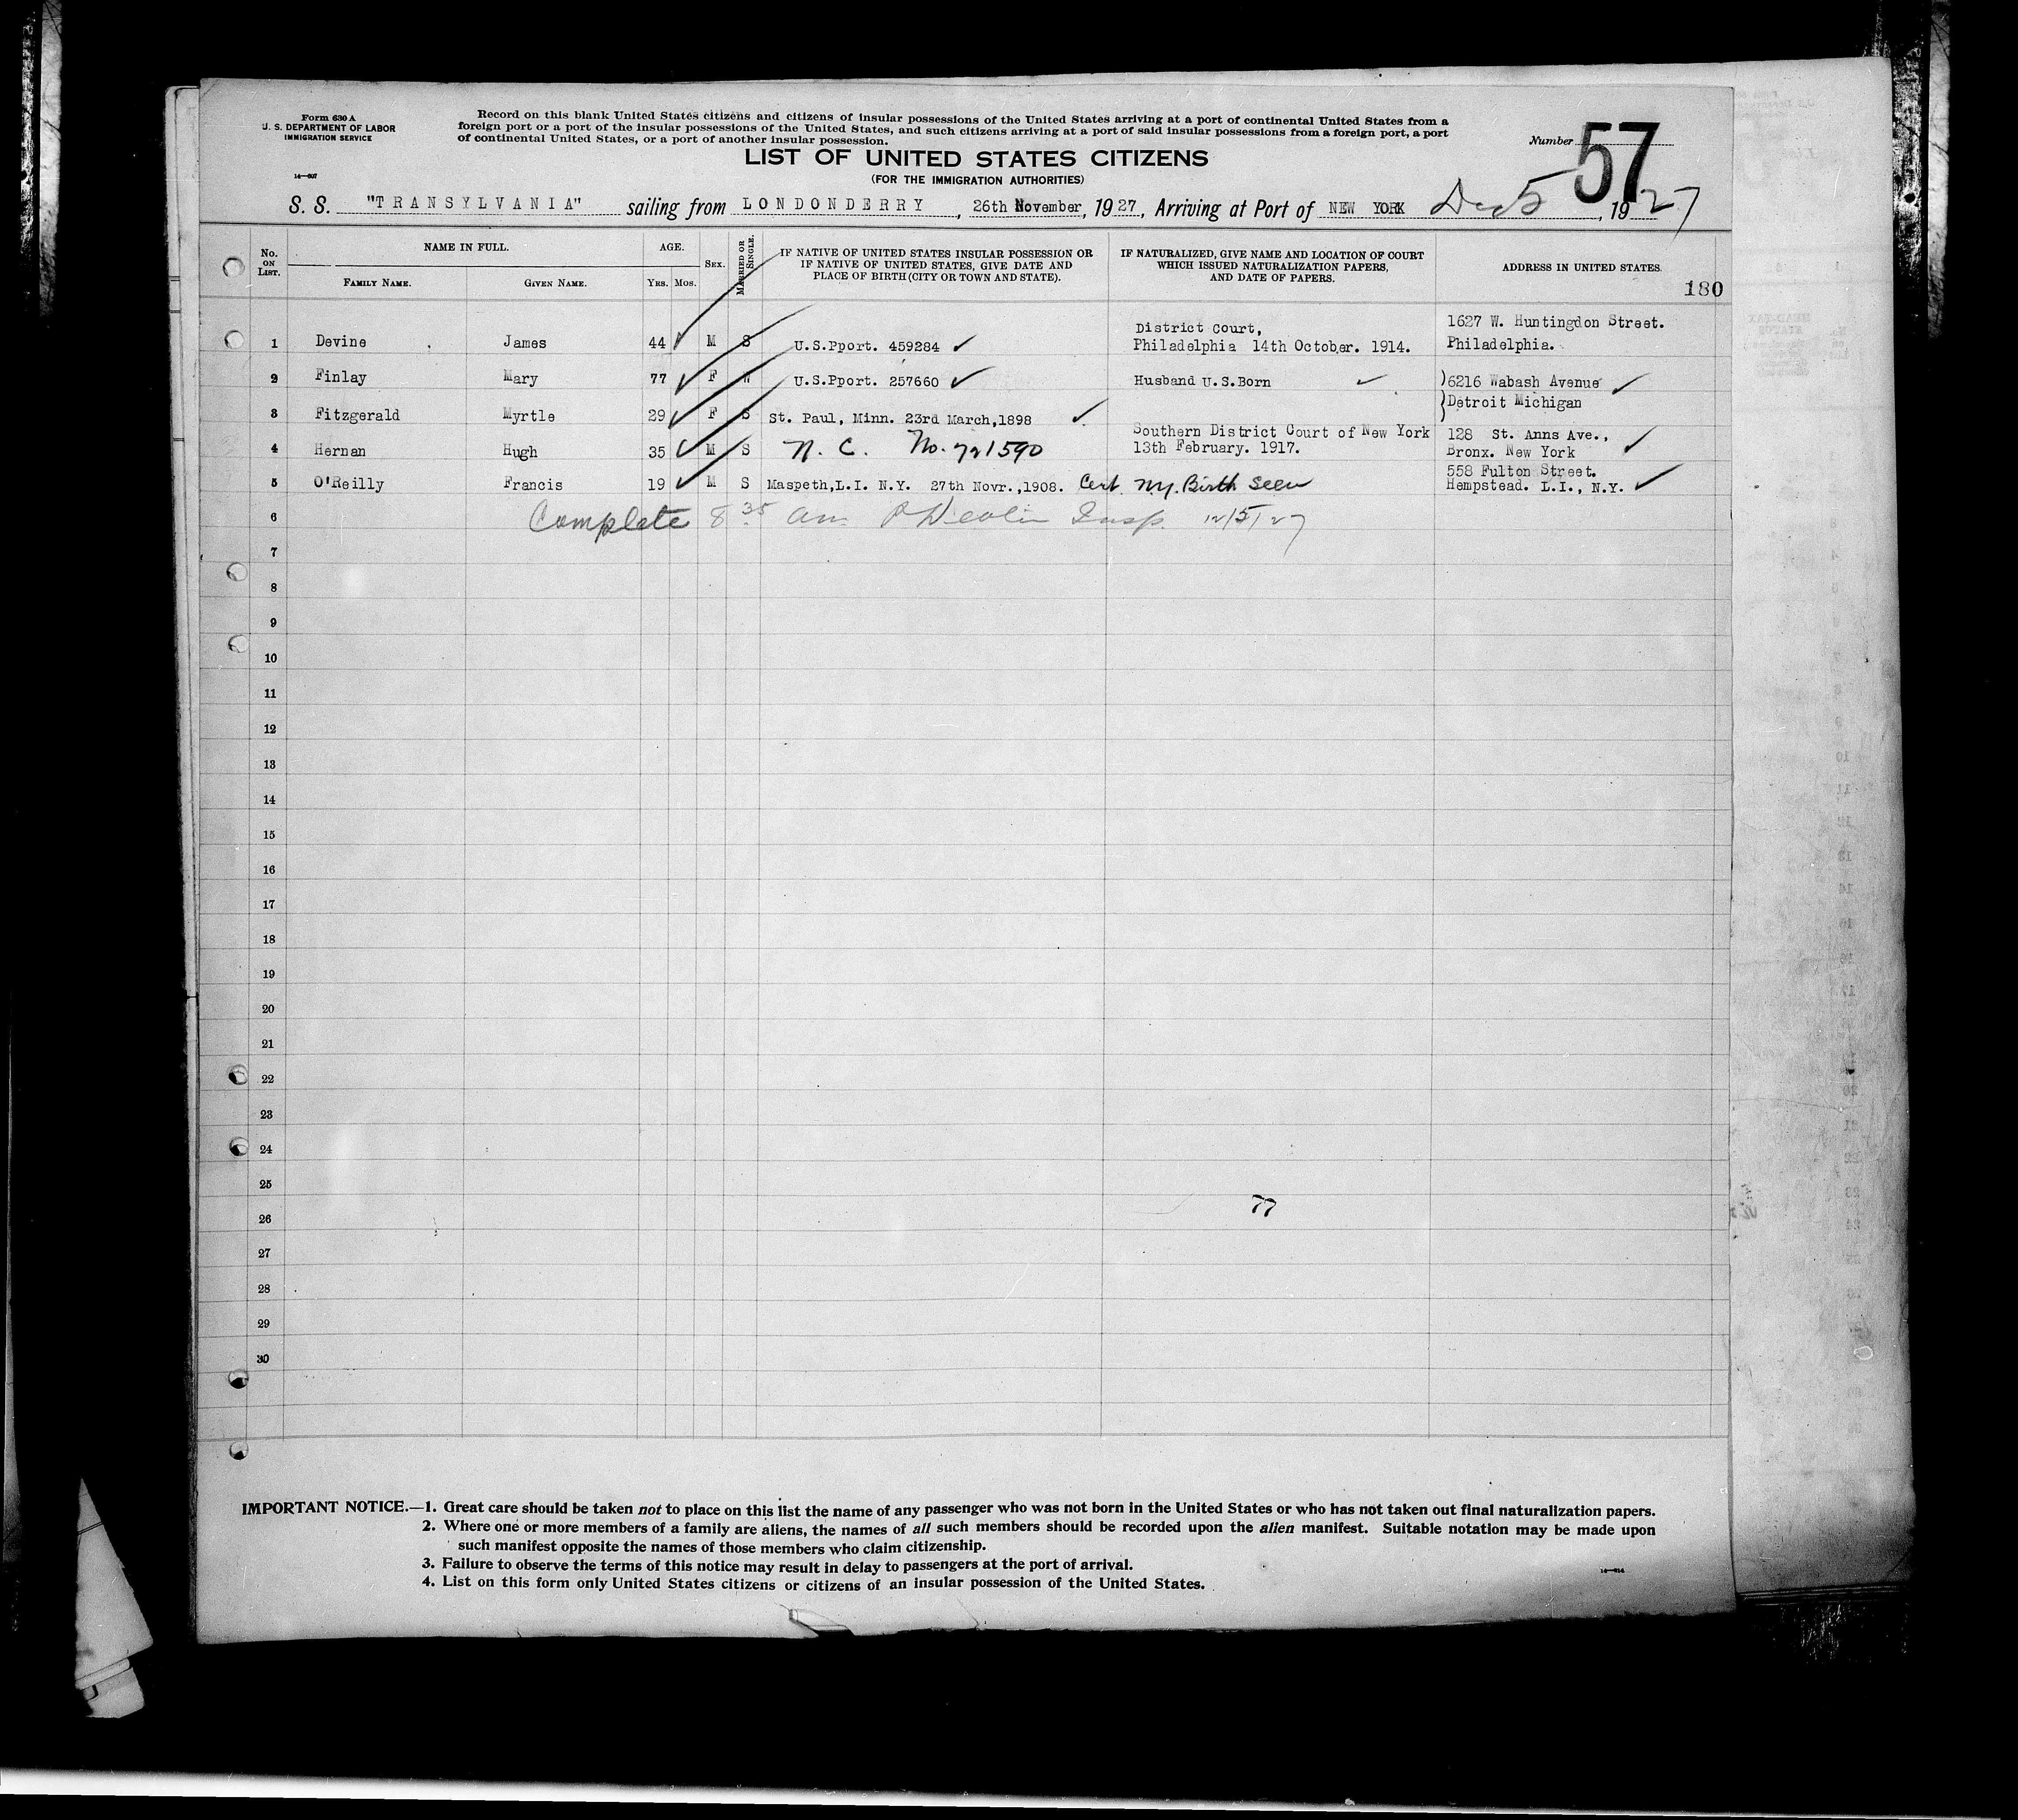 Form 630 A
U. S. DEPARTMENT OF LABOR
IMMIGRATION SERVICE
14—607
Record on this blank United States citizens and citizens of insular possessions of the United States arriving at a port of continental United States from a
foreign port or a port of the insular possessions of the United States, and such citizens arriving at a port of said insular possessions from a foreign port, a port
of continental United States, or a port of another insular possession.
Number 57
LIST OF UNITED STATES CITIZENS
(FOR THE IMMIGRATION AUTHORITIES)
S. S. "TRANSYLVANIA" sailing from LONDONDERRY, 26th November, 1927, Arriving at Port of NEW YORK Dec 5, 1927
No. ON LIST. NAME IN FULL. AGE. SEX. MARRIED OR SINGLE. IF NATIVE OF UNITED STATES INSULAR POSSESSION OR IF NATIVE OF UNITED STATES, GIVE DATE AND PLACE OF BIRTH (CITY OR TOWN AND STATE). IF NATURALIZED, GIVE NAME AND LOCATION OF COURT WHICH ISSUED NATURALIZATION PAPERS, AND DATE OF PAPERS. ADDRESS IN UNITED STATES.
FAMILY NAME. GIVEN NAME. YRS. MOS.
180
1 Devine James 44 M S U.S.Pport. 459284 District Court, Philadelphia 14th October. 1914. 1627 W. Huntingdon Street. Philadelphia.
2 Finlay Mary 77 F W U.S.Pport. 257660 Husband U.S.Born )6216 Wabash Avenue
3 Fitzgerald Myrtle 29 F S St. Paul, Minn. 23rd March,1898 )Detroit Michigan
4 Hernan Hugh 35 M S N. C. No. 721590 Southern District Court of New York 13th February. 1917. 128 St. Anns Ave., Bronx. New York
5 O'Reilly Francis 19 M S Maspeth,L.I. N.Y. 27th Novr.,1908. Cert. N.Y. Birth seen 558 Fulton Street. Hempstead. L.I., N.Y.
6 Complete 8 35 am Insp. 12/5/27
7
8
9
10
11
12
13
14
15
16
17
18
19
20
21
22
23
24
25
77
26
27
28
29
30
IMPORTANT NOTICE.—1. Great care should be taken not to place on this list the name of any passenger who was not born in the United States or who has not taken out final naturalization papers.
2. Where one or more members of a family are aliens, the names of all such members should be recorded upon the alien manifest. Suitable notation may be made upon
such manifest opposite the names of those members who claim citizenship.
3. Failure to observe the terms of this notice may result in delay to passengers at the port of arrival.
4. List on this form only United States citizens or citizens of an insular possession of the United States.